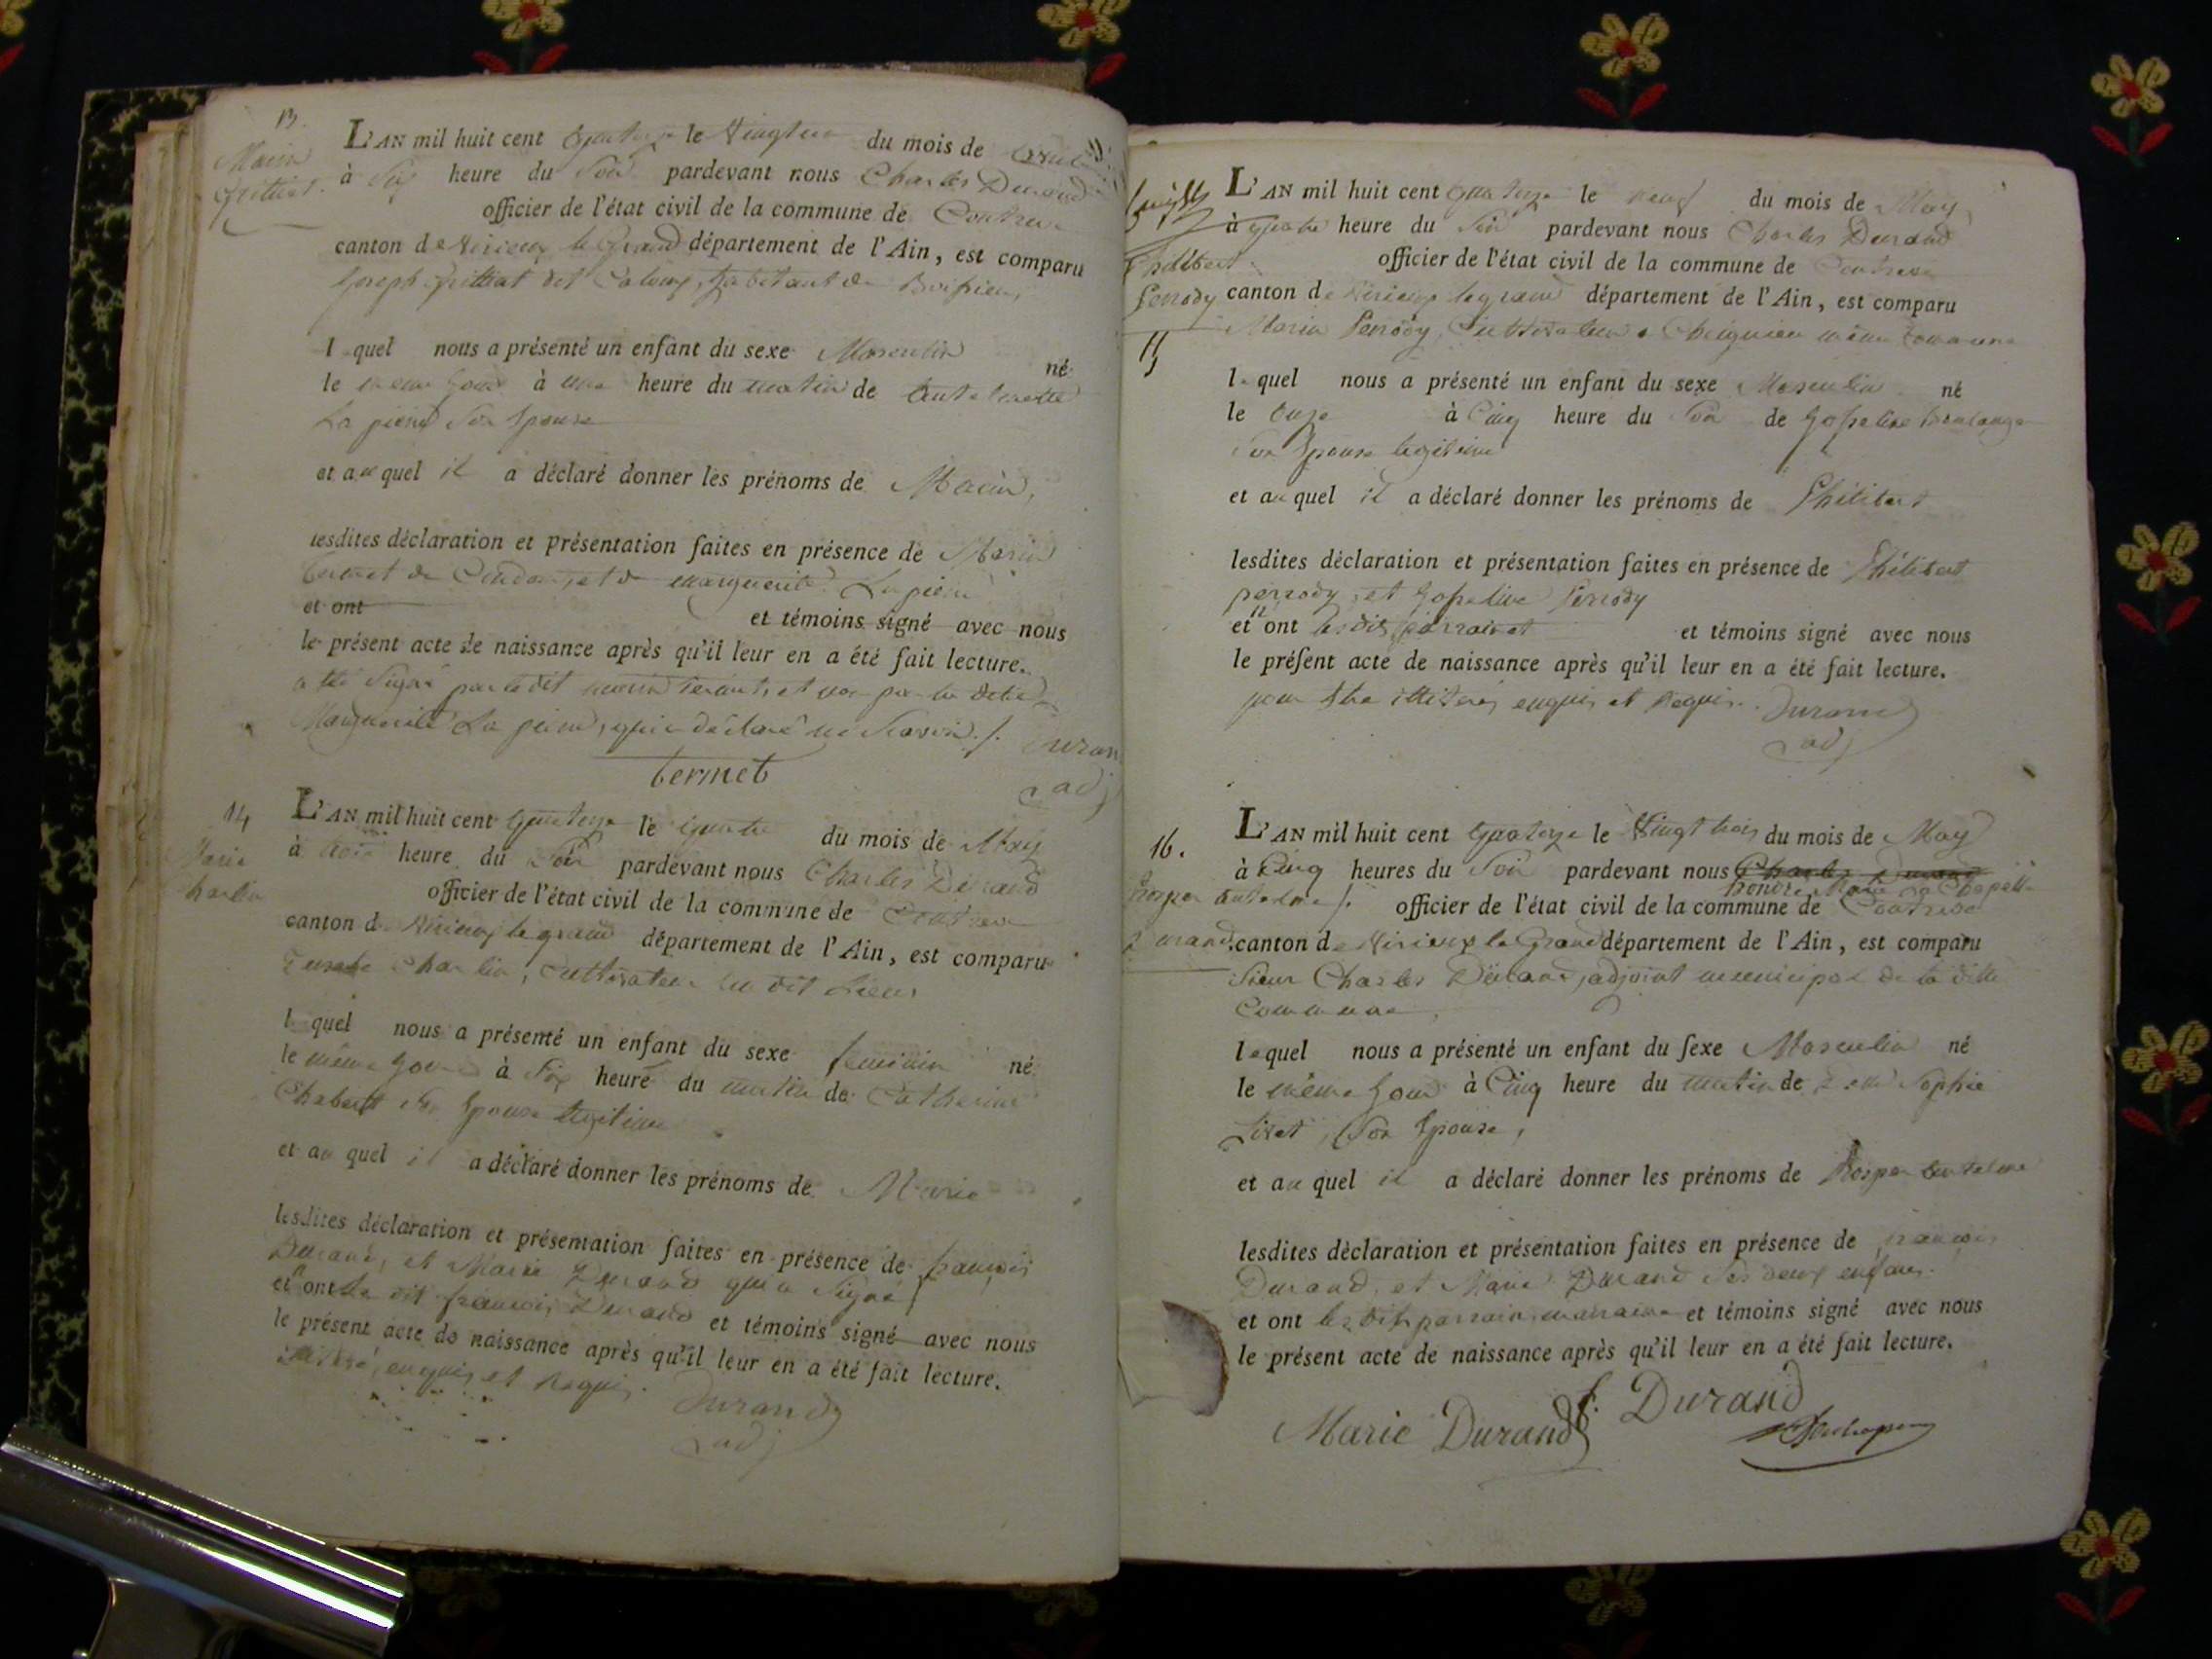 13.
Marin
L'AN mil huit cent Quatorze le Vingt du mois de
à Six heure du Soir pardevant nous Charles Durand
officier de l'état civil de la commune de Contrevoz
canton de Virieux le Grand département de l'Ain, est comparu
Joseph dit habitant de
l quel nous a présenté un enfant du sexe Masculin né
le meme Jour à une heure du matin de
La pierre Son Epouse
et auquel il a déclaré donner les prénoms de Marin,
lesdites déclaration et présentation faites en présence de Marin
termet de et de marguerite La pierre
et ont et témoins signé avec nous
le présent acte de naissance après qu'il leur en a été fait lecture.
a été Signé par le dit marin termet, et non par la dite
Marguerite La pierre, qui a déclaré ne Savoir ./. Duran
termet adj
14
Marie
harlin
L'AN mil huit cent Quatorze le Quatre du mois de May
à heure du Soir pardevant nous Charles Durand
officier de l'état civil de la commune de Contrevoz
canton de Virieux le grand département de l'Ain, est comparu
Charlin, Cultivateur du dit Lieu
l quel nous a présenté un enfant du sexe feminin né
le même Jour à Six heure du matin de Catherine
Chabert Son Epouse legitime
et au quel il a déclaré donner les prénoms de Marie
lesdites déclaration et présentation faites en présence de françois
Durand, et Marie Durand qui a Signé
et n ont le dit françois Durand et témoins signé avec nous
le présent acte de naissance après qu'il leur en a été fait lecture.
enquis et Requis. Durand
adj
Philibert
Perrody
15
L'AN mil huit cent Quatorze le neuf du mois de May
à quatre heure du Soir pardevant nous Charles Durand
officier de l'état civil de la commune de Contrevoz
canton de Virieux le grand département de l'Ain, est comparu
Marin Perrody, Cultivateur a Cheignieu même Commune
le quel nous a présenté un enfant du sexe Masculin né
le à Cinq heure du Soir de Josephine
Son Epouse legitime
et au quel il a déclaré donner les prénoms de Philibert
lesdites déclaration et présentation faites en présence de Philibert
perrody, et Josephine Perrody
et n ont les dits parrain et et témoins signé avec nous
le présent acte de naissance après qu'il leur en a été fait lecture.
pour être illiterés enquis et Requis. Durand
adj
16.
Prosper antelme ./.
Durand.
L'AN mil huit cent Quatorze le Vingt trois du mois de May
à Cinq heures du Soir pardevant nous Charles Durand
honoré Marie La Chapelle
officier de l'état civil de la commune de Contrevoz
canton de Virieux le Grand département de l'Ain, est comparu
Sieur Charles Durand, adjoint municipal de la ditte
Commune,
lequel nous a présenté un enfant du sexe Masculin né
le même Jour à Cinq heure du matin de Sophie
Son Epouse,
et au quel il a déclaré donner les prénoms de Prosper antelme
lesdites déclaration et présentation faites en présence de françois
Durand, et Marie Durand Ses deux enfans.
et ont les dits parrain, marraine et témoins signé avec nous
le présent acte de naissance après qu'il leur en a été fait lecture.
Marie Durand f. Durand